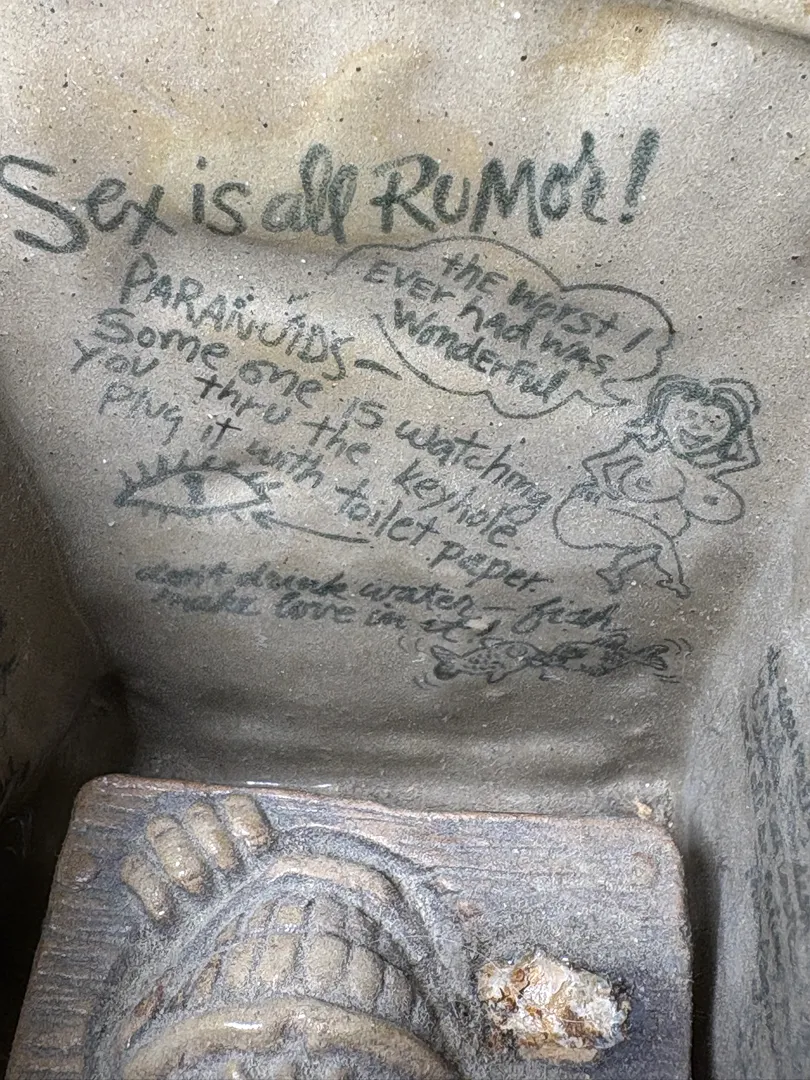 Sex is all RuMoR!
the worst I
EVER had was
WONDERFUL
PARANOIDS—
Some one is watching
you thru the keyhole
plug it with toilet paper.
don't drink water— fish
make love in it!